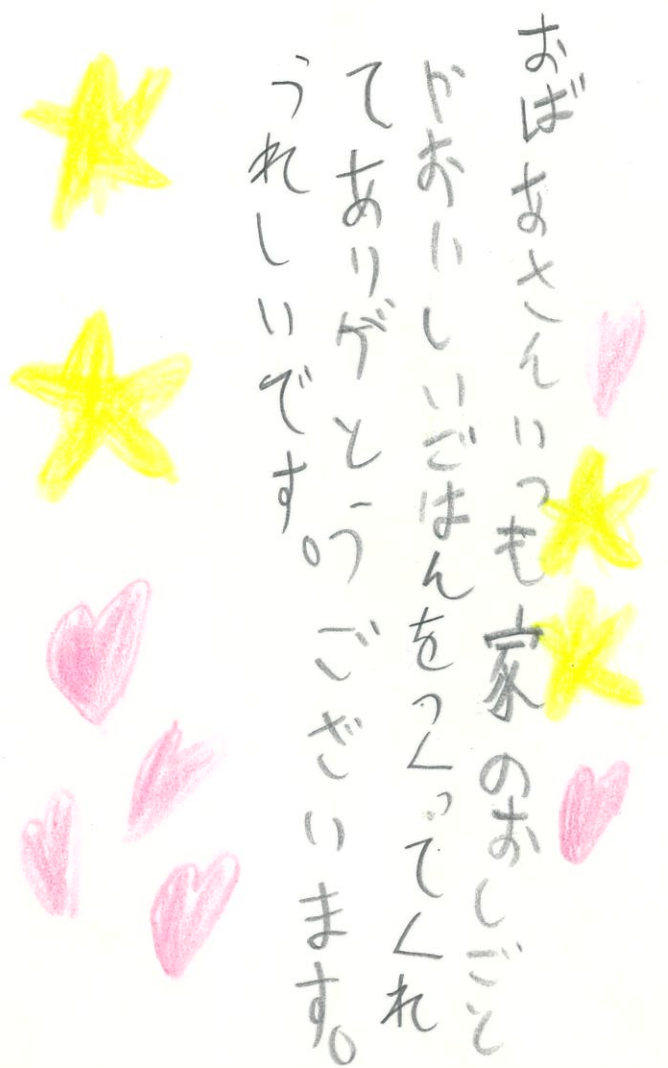 おばあさんいつも家のおしごと
かおいしいごはんをつくってくれ
てありがとうございます。
うれしいです。